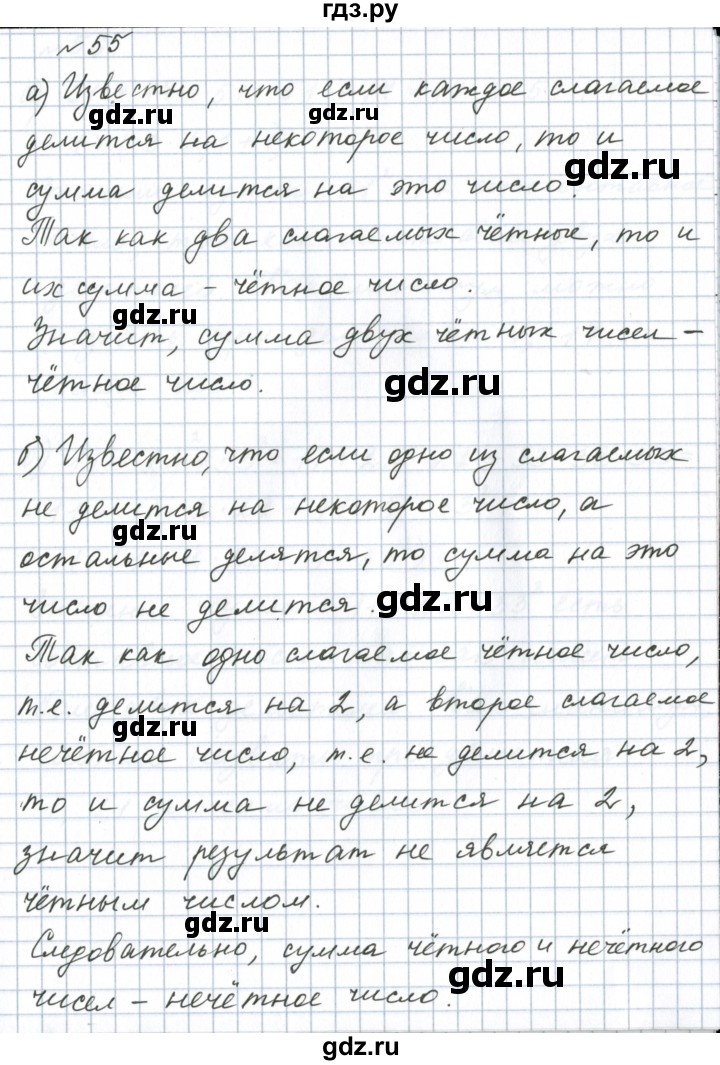 гдз.ру
№ 55
а) Известно, что если каждое слагаемое
gdz.ru
делится на некоторое число, то и
gdz.ru
сумма делится на это число.
Так как два слагаемых чётные, то и
их сумма – чётное число.
gdz.ru
Значит, сумма двух чётных чисел –
чётное число.
gdz.ru
б) Известно, что если одно из слагаемых
не делится на некоторое число, а
gdz.ru
остальные делятся, то сумма на это
число не делится.
gdz.ru
Так как одно слагаемое чётное число,
т.е. делится на 2, а второе слагаемое
gdz.ru
нечётное число, т.е. не делится на 2,
то и сумма не делится на 2,
значит результат не является
чётным числом.
gdz.ru
Следовательно, сумма чётного и нечётного
gdz.ru
чисел – нечётное число.
gdz.ru